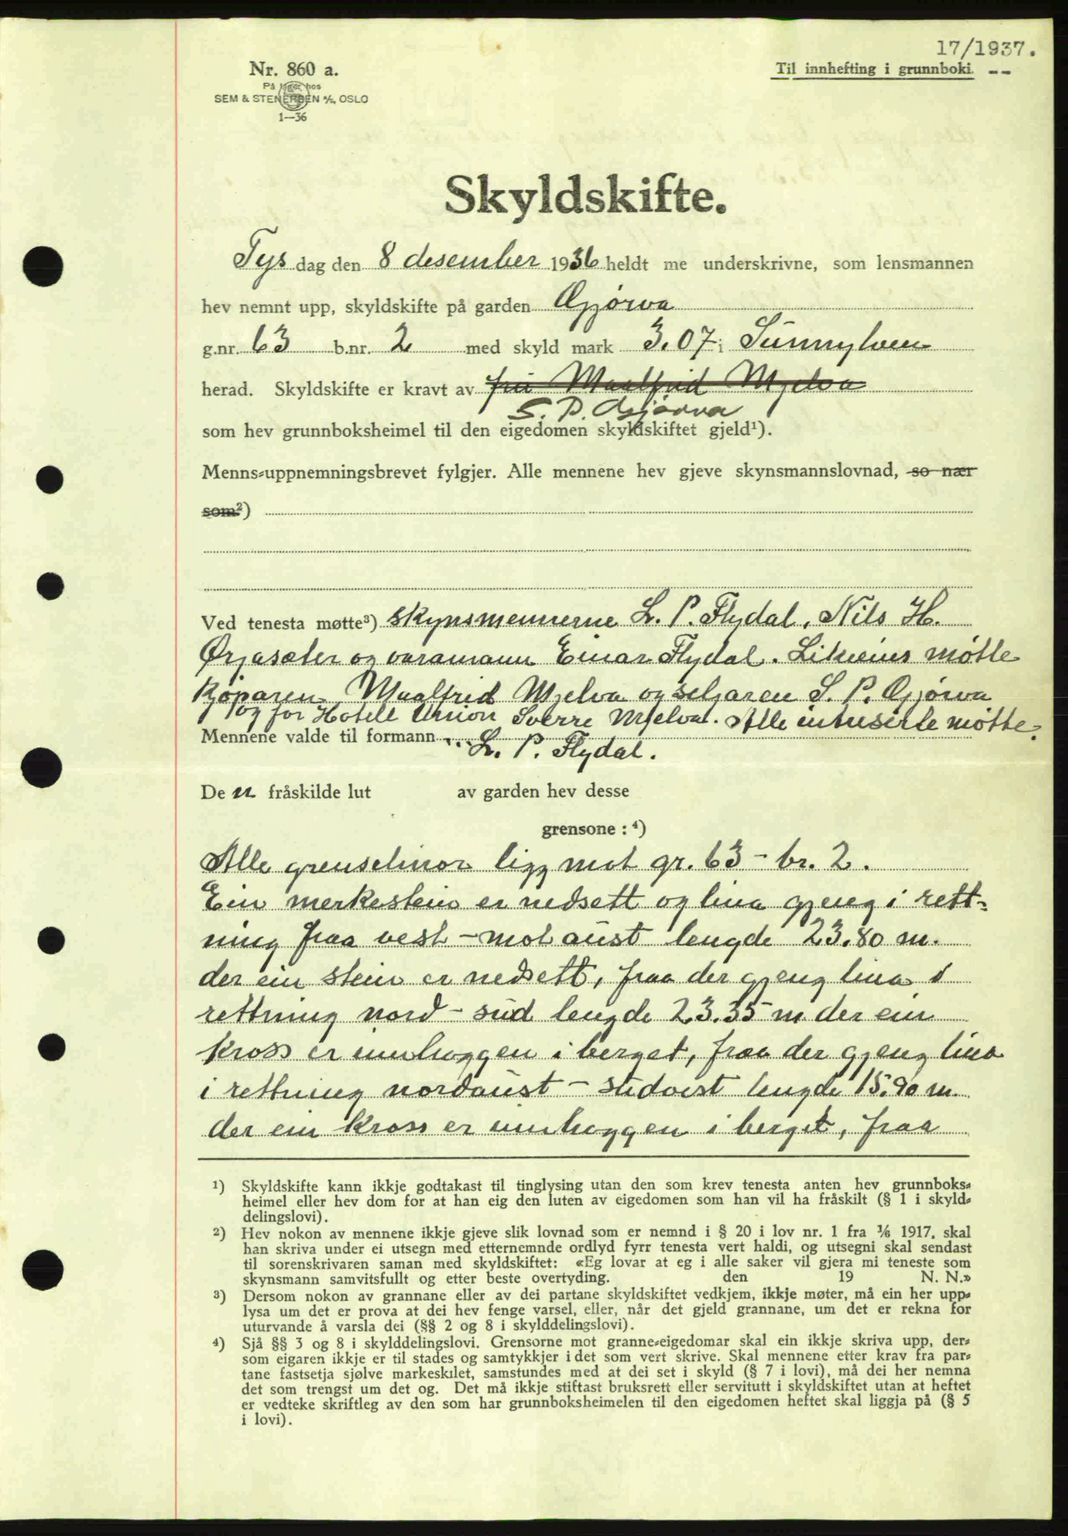 17/1937.
Nr. 860 a.
Til innhefting i grunnboki. --
På lager hos
SEM & STENERSEN A/S, OSLO
1—36
Skyldskifte.
Tys dag den 8 desember 1936 heldt me underskrivne, som lensmannen
hev nemnt upp, skyldskifte på garden Gjørva
g.nr. 63 b.nr. 2 med skyld mark 3.07 i Sunnylven
herad. Skyldskifte er kravt av fru Maalfrid Mjelva
S. P. Gjørva
som hev grunnboksheimel til den eigedomen skyldskiftet gjeld¹).
Menns-uppnemningsbrevet fylgjer. Alle mennene hev gjeve skynsmannslovnad, so nær
som²)
Ved tenesta møtte³) skynsmennerne L. P. Flydal, Nils H.
Ørjasæter og varamann Einar Flydal. Likeeins møtte
kjøparen Maalfrid Mjelva og seljaren S. P. Gjørva
og for Hotell Union Sverre Mjelva. Alle intriserte møtte.
Mennene valde til formann L. P. Flydal.
De n fråskilde lut av garden hev desse
grensone : ⁴)
Alle grenselinor ligg mot gr. 63 - br. 2.
Ein merkestein er nedsett og lina gjeng i rett-
ning fraa vest - mot aust lengde 23.80 m.
der ein stein er nedsett, fraa der gjeng lina i
rettning nord - sud lengde 23.35 m der ein
kross er innhoggen i berget, fraa der gjeng lina
i rettning nordaust - sudvest lengde 15.90 m.
der ein kross er innhoggen i berget, fraa
¹) Skyldskifte kann ikkje godtakast til tinglysing utan den som krev tenesta anten hev grunnboks-
heimel eller hev dom for at han eig den luten av eigedomen som han vil ha fråskilt (§ 1 i skyld-
delingslovi).
²) Hev nokon av mennene ikkje gjeve slik lovnad som er nemnd i § 20 i lov nr. 1 fra ¹/₆ 1917, skal
han skriva under ei utsegn med etternemnde ordlyd fyrr tenesta vert haldi, og utsegni skal sendast
til sorenskrivaren saman med skyldskiftet: «Eg lovar at eg i alle saker vil gjera mi teneste som
skynsmann samvitsfullt og etter beste overtyding. den 19 N. N.»
³) Dersom nokon av grannane eller av dei partane skyldskiftet vedkjem, ikkje møter, må ein her upp-
lysa um det er prova at dei hev fenge varsel, eller, når det gjeld grannane, um det er rekna for
uturvande å varsla dei (§§ 2 og 8 i skylddelingslovi).
⁴) Sjå §§ 3 og 8 i skylddelingslovi. Grensorne mot granne-eigedomar skal ein ikkje skriva upp, der-
som eigaren ikkje er til stades og samtykkjer i det som vert skrive. Skal mennene etter krav fra par-
tane fastsetja sjølve markeskilet, samstundes med at dei set i skyld (§ 7 i lovi), må dei her nemna
det som trengst um det og. Det må ikkje stiftast bruksrett eller servitutt i skyldskiftet utan at heftet
er vedteke skriftleg av den som har grunnboksheimelen til den eigedomen heftet skal liggja på (§ 5
i lovi).